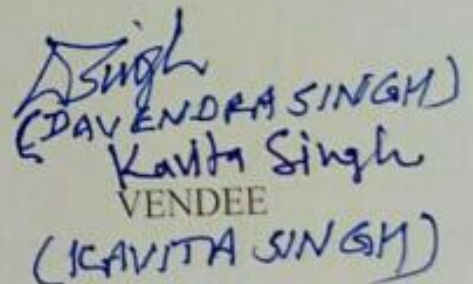 DSingh
(DAVENDRA SINGH)
Kavita Singh
VENDEE
(KAVITA SINGH)